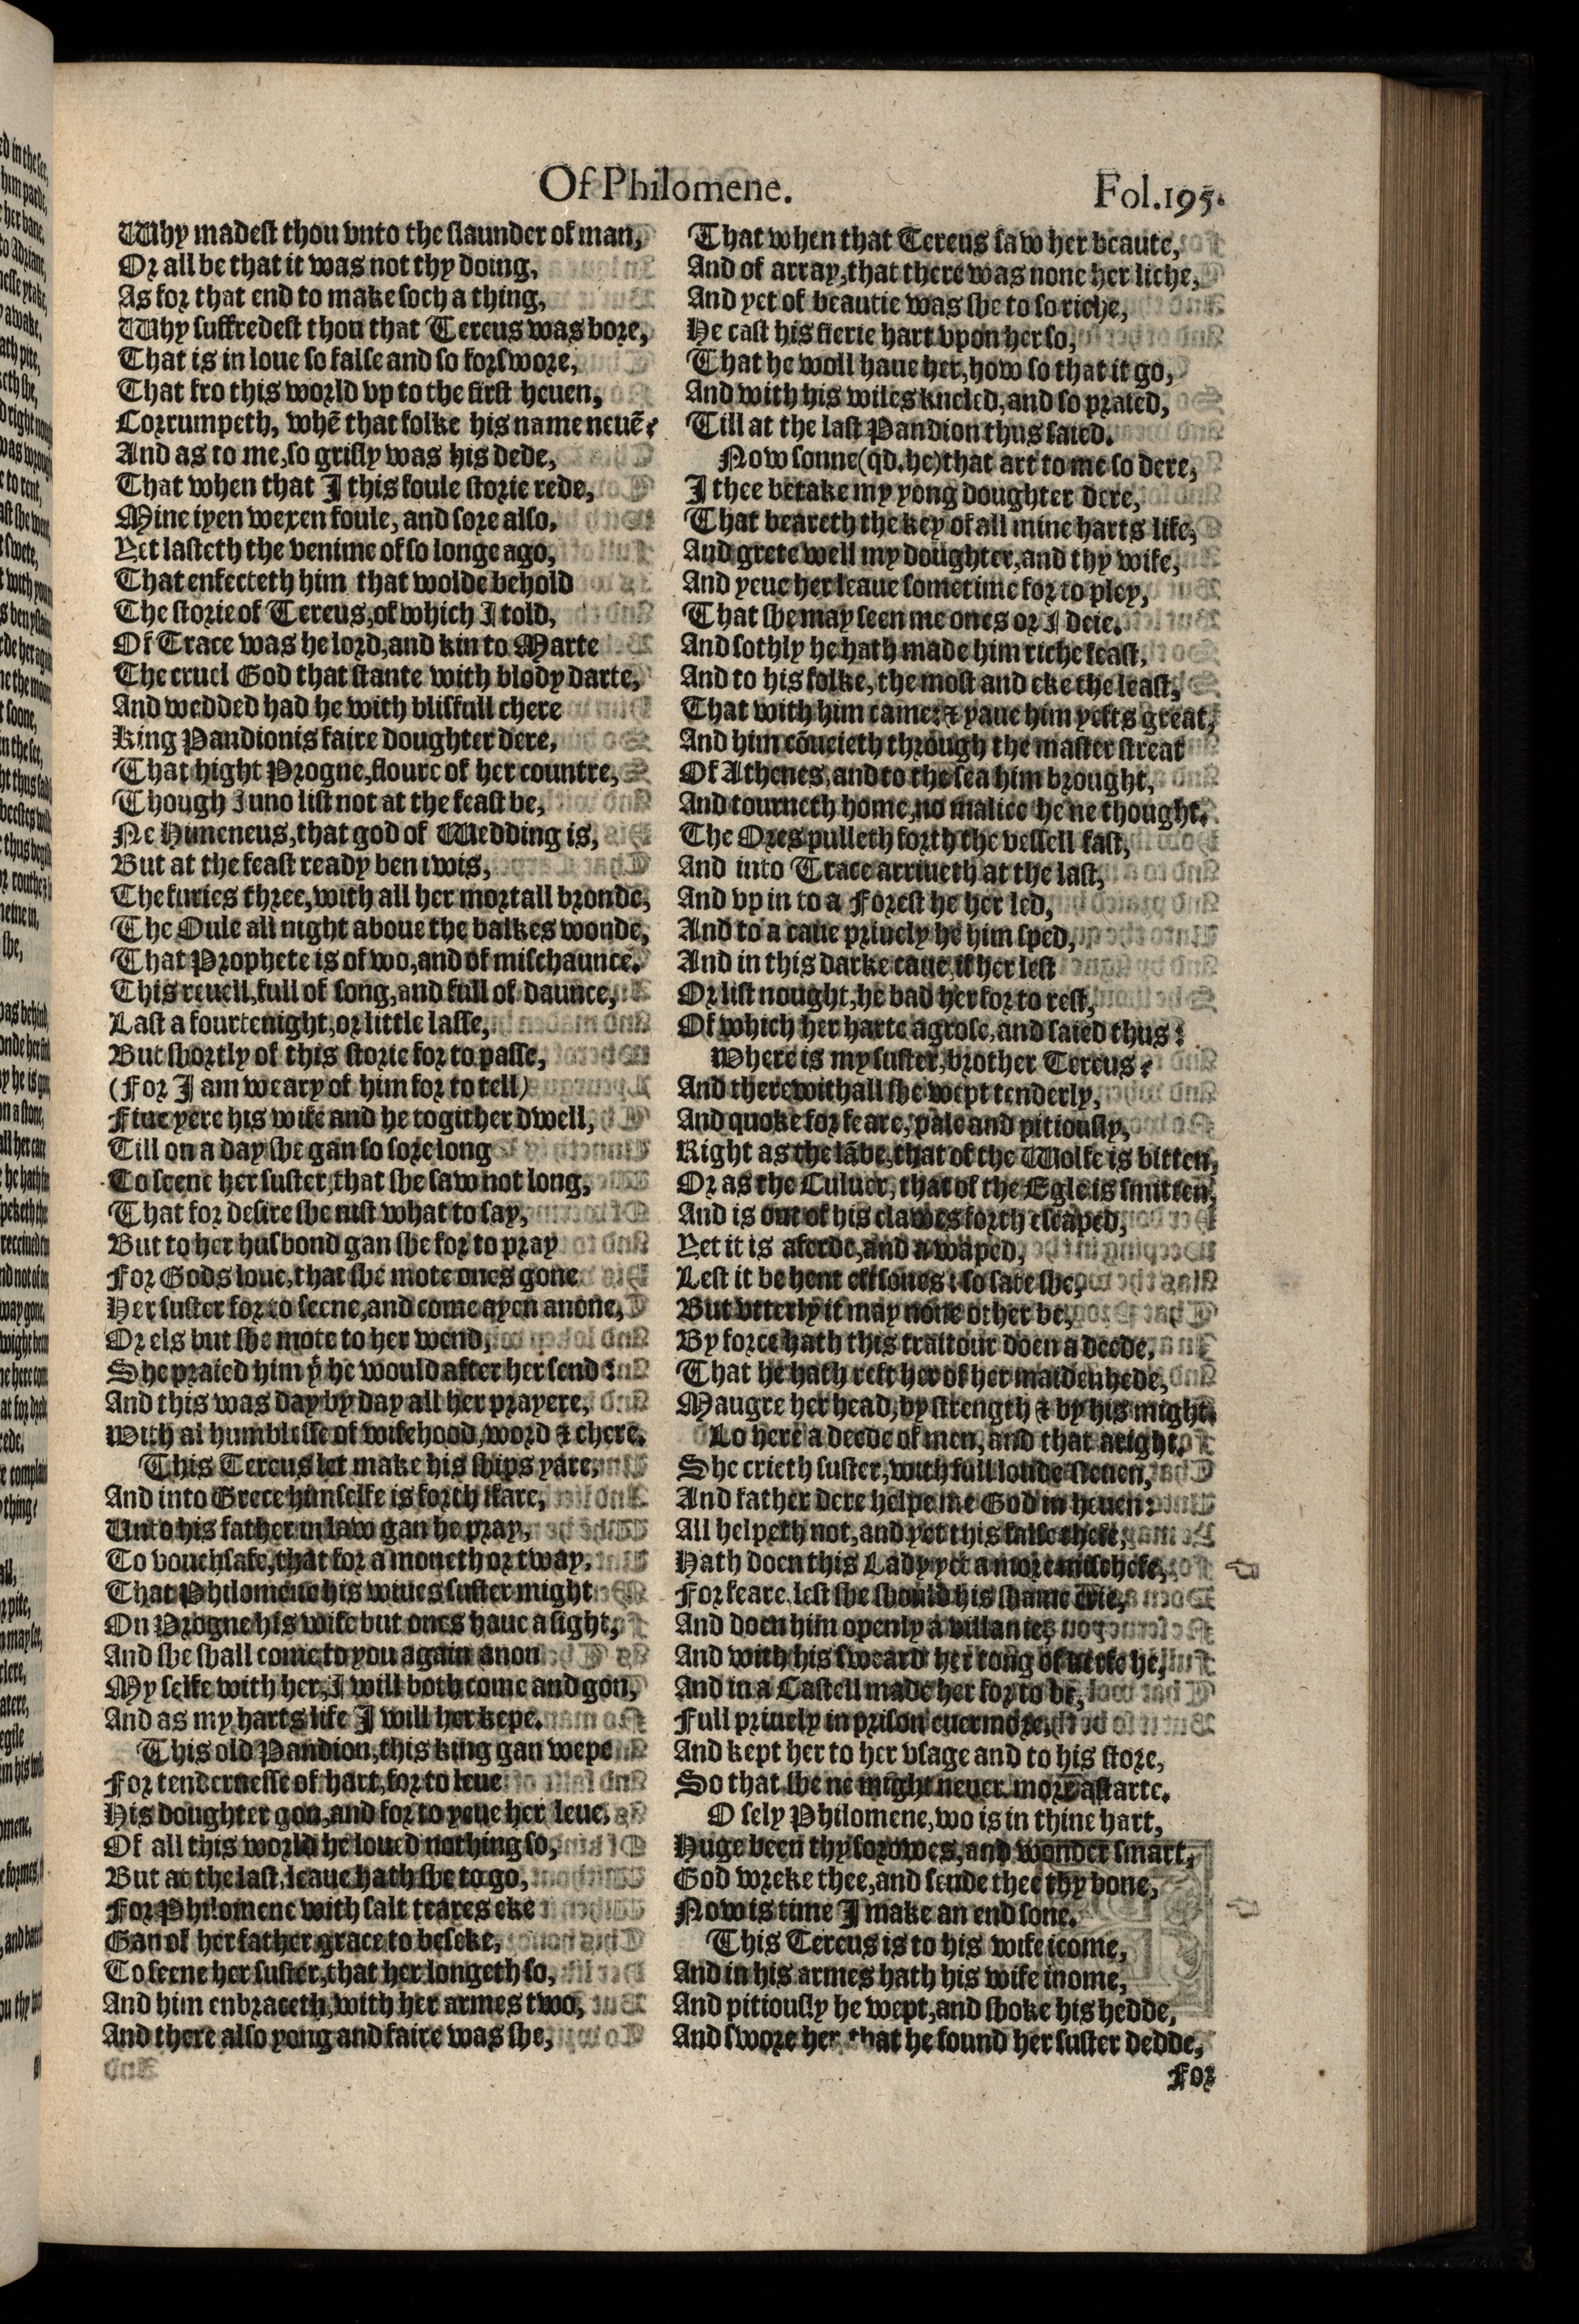 Of Philomene. Fol.195.
Why madest thou vnto the slaunder of man,
Or all be that it was not thy doing,
As for that end to make soch a thing,
Why suffredest thou that Tereus was bore,
That is in loue so false and so forswore,
That fro this world vp to the first heuen,
Corrumpeth, whē that folke his name neuē?
And as to me, so grisly was his dede,
That when that I this foule storie rede,
Mine iyen wexen foule, and sore also,
Yet lasteth the venime of so longe ago,
That enfecteth him that wolde behold
The storie of Tereus, of which I told,
Of Trace was he lord, and kin to Marte
The cruel God that stante with blody darte,
And wedded had he with blisfull chere
King Pandionis faire doughter dere,
That hight Progne, floure of her countre,
Though Iuno list not at the feast be,
Ne Himeneus, that god of Wedding is,
But at the feast ready ben iwis,
The furies three, with all her mortall bronde,
The Oule all night aboue the balkes wonde,
That Prophete is of wo, and of mischaunce.
This reuell, full of song, and full of daunce,
Last a fourtenight, or little lasse,
But shortly of this storie for to passe,
(For I am weary of him for to tell)
Fiue yere his wife and he togither dwell,
Till on a day she gan so sore long
To seene her suster, that she saw not long,
That for desire she nist what to say,
But to her husbond gan she for to pray
For Gods loue, that she mote ones gone
Her suster for to seene, and come ayen anone,
Or els but she mote to her wend,
She praied him ẏ he would after her send:
And this was day by day all her prayere,
With al humblesse of wifehood, word & chere.
This Tereus let make his ships yare,
And into Grece himselfe is forth ifare,
Unto his father in law gan he pray,
To vouchsafe, that for a moneth or tway,
That Philomene his wiues suster might
On Progne his wife but ones haue a sight,
And she shall come to you again anon
My selfe with her, I will both come and gon,
And as my harts life I will her kepe.
This old Pandion, this king gan wepe
For tendernesse of hart, for to leue
His doughter gon, and for to yeue her leue,
Of all this world he loued nothing so,
But at the last, leaue hath she to go,
For Philomene with salt teares eke
Gan of her father grace to beseke,
To seene her suster, that her longeth so,
And him enbraceth, with her armes two,
And there also yong and faire was she,
That when that Tereus saw her beaute,
And of array, that there was none her liche,
And yet of beautie was she to so riche,
He cast his fierie hart vpon her so,
That he woll haue her, how so that it go,
And with his wiles kneled, and so praied,
Till at the last Pandion thus saied.
Now sonne (qd. he) that art to me so dere,
I thee betake my yong doughter dere,
That beareth the key of all mine harts life,
And grete well my doughter, and thy wife,
And yeue her leaue sometime for to pley,
That she may seen me ones or I deie.
And sothly he hath made him riche feast,
And to his folke, the most and eke the least,
That with him came: & yaue him yefts great,
And him cōueieth through the master streat
Of Athenes, and to the sea him brought,
And tourneth home, no malice he ne thought.
The Ores pulleth forth the vessell fast,
And into Trace arriueth at the last,
And vp in to a Forest he her led,
And to a caue priuely he him sped,
And in this darke caue, if her lest
Or list nought, he bad her for to rest,
Of which her harte agrose, and saied thus:
Where is my suster, brother Tereus?
And therewithall she wept tenderly,
And quoke for feare, pale and pitiously,
Right as the lābe, that of the Wolfe is bitten,
Or as the Culuer, that of the Egle is smitten,
And is out of his clawes forth escaped,
Yet it is aferde, and awaped,
Lest it be hent eftsones: so sate she,
But vtterly it may none other be,
By force hath this traitour doen a deede,
That he hath reft her of her maidenhede,
Maugre her head, by strength & by his might.
Lo here a deede of men, and that aright.
She crieth suster, with full loude steuen,
And father dere helpe me God in heuen:
All helpeth not, and yet this false thefe,
Hath doen this Lady yet a more mischefe,
For feare, lest she should his shame crie,
And doen him openly a villanie,
And with his sweard her tong of kerfe he,
And in a Castell made her for to be,
Full priuely in prison euermore,
And kept her to her vsage and to his store,
So that she ne might neuer more astarte.
O sely Philomene, wo is in thine hart,
Huge been thy sorowes, and wonder smart,
God wreke thee, and sende thee thy bone,
Now is time I make an end sone.
This Tereus is to his wife icome,
And in his armes hath his wife inome,
And pitiously he wept, and shoke his hedde,
And swore her that he found her suster dedde,
For